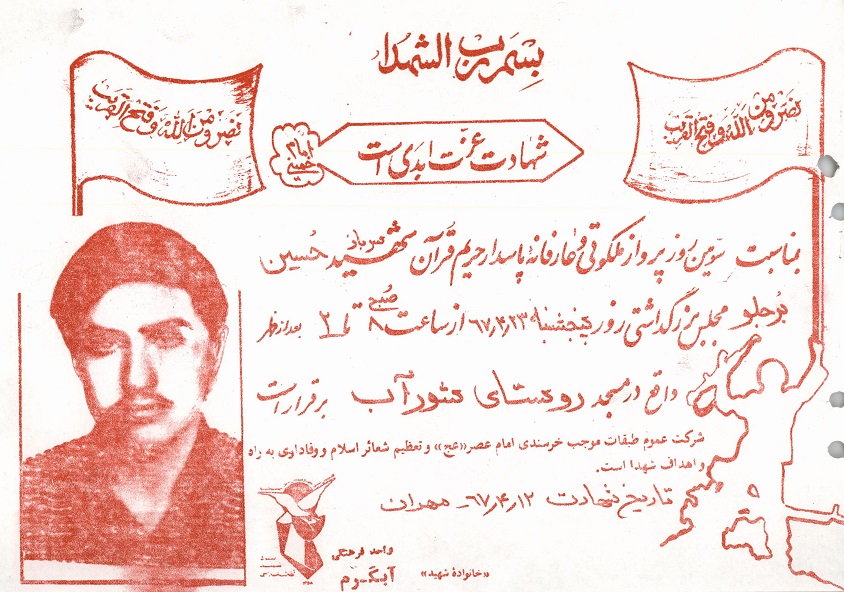 بسم رب الشهدا
نصر من الله و فتح القریب
نصر من الله و فتح القریب
امام خمینی
شهادت عزت ابدی است
بمناسبت سومین روز پرواز ملکوتی و عارفانهٔ پاسدار حریم قرآن شهید سرباز حسین
بُرجلو مجلس بزرگداشتی روز پنجشنبه ۶۷/۴/۲۳ از ساعت ۸ صبح تا ۲ بعدازظهر
واقع در مسجد روستای شورآب برقرار است
شرکت عموم طبقات موجب خرسندی امام عصر «عج» و تعظیم شعائر اسلام و وفاداری به راه
و اهداف شهدا است.
تاریخ شهادت ۶۷/۴/۱۲ - مهران
واحد فرهنگی
آبگرم
«خانوادهٔ شهید»